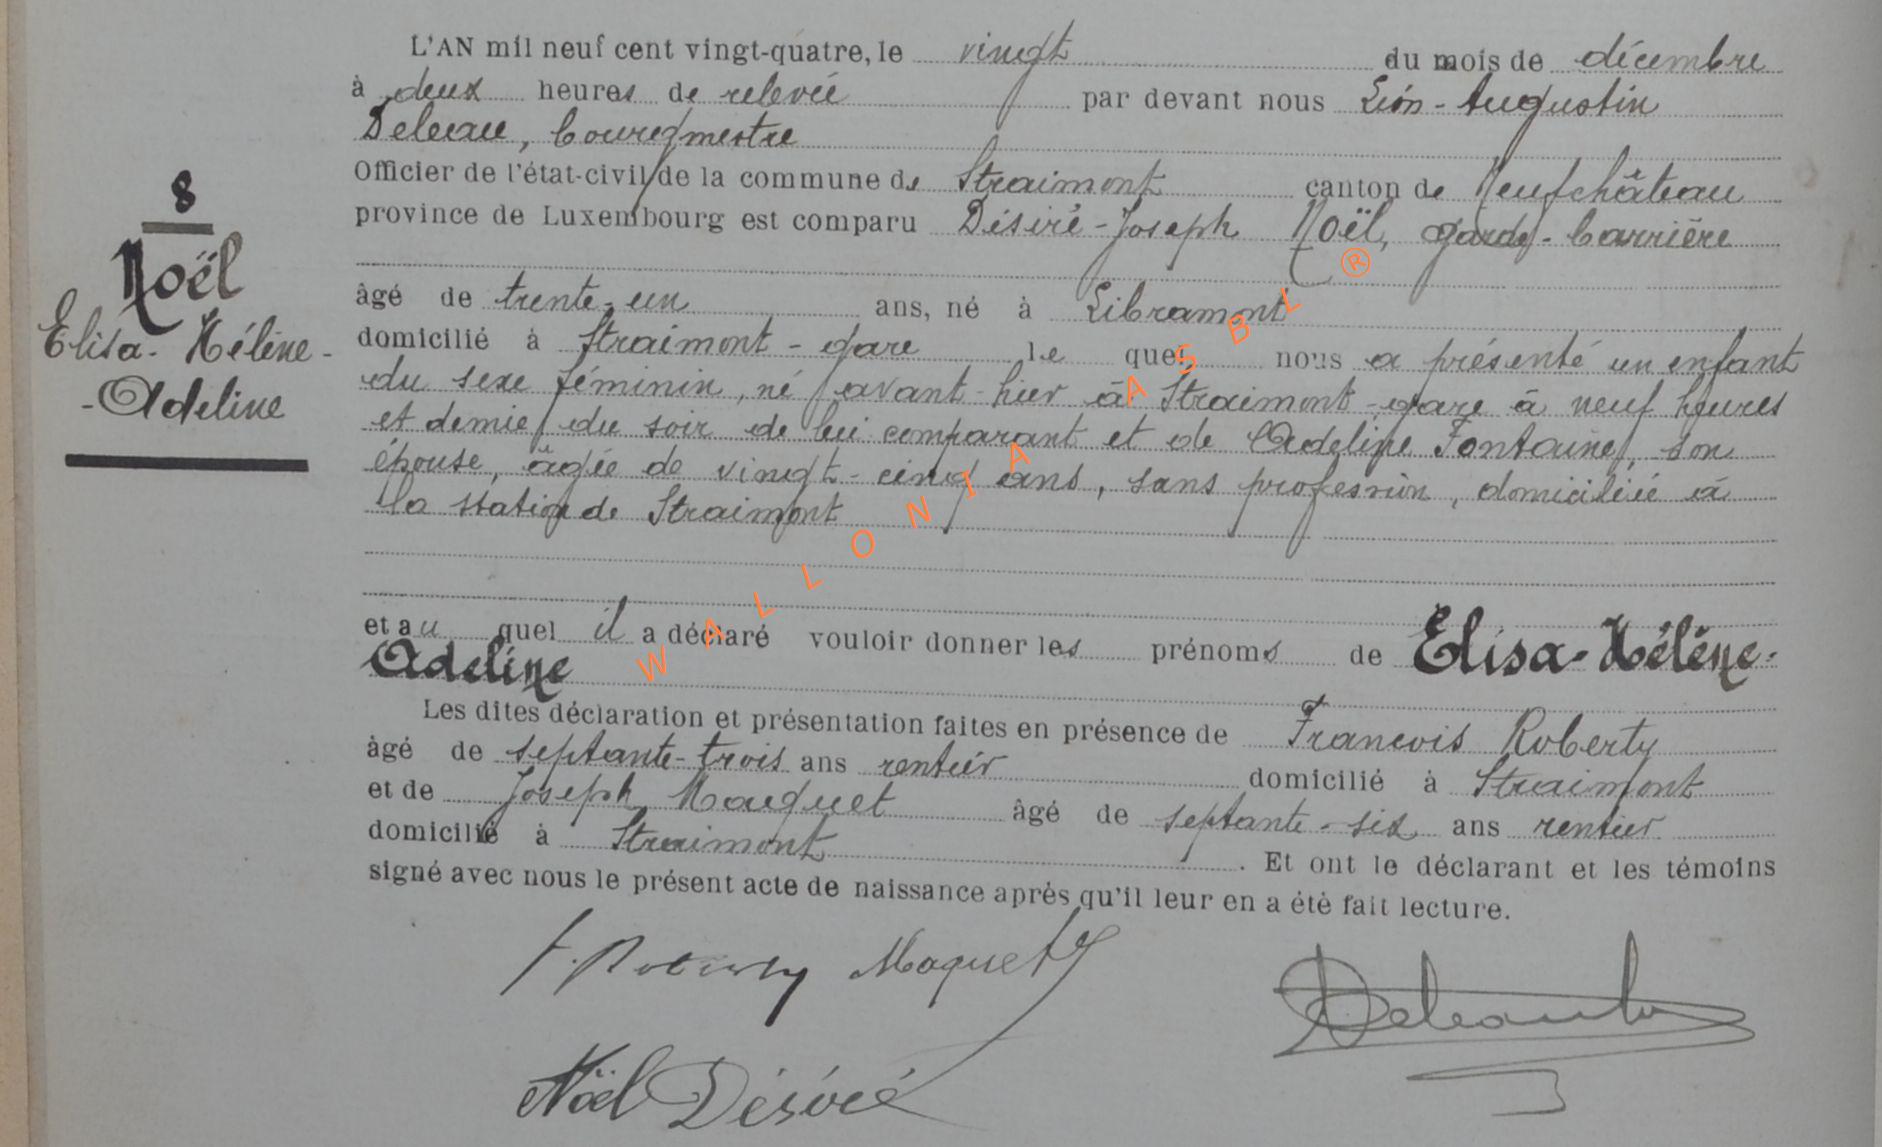 8
Noël
Elisa-Hélène-
-Adeline
L'AN mil neuf cent vingt-quatre, le vingt du mois de décembre
à deux heures de relevée par devant nous Léon-Augustin
Deleau, bourgmestre
Officier de l'état-civil de la commune de Straimont canton de Neufchâteau
province de Luxembourg est comparu Désiré-Joseph Noël, garde-barrière
âgé de trente-un ans, né à Libramont
domicilié à Straimont-gare le quel nous a présenté un enfant
du sexe féminin, né avant-hier à Straimont-gare à neuf heures
et demie du soir de lui comparant et de Adeline Fontaine, son
épouse, âgée de vingt-cinq ans, sans profession, domiciliée à
la station de Straimont
et au quel il a déclaré vouloir donner les prénoms de Elisa-Hélène-
Adeline
Les dites déclaration et présentation faites en présence de François Roberty
âgé de septante-trois ans rentier domicilié à Straimont
et de Joseph Maquet âgé de septante-six ans rentier
domicilié à Straimont. Et ont le déclarant et les témoins
signé avec nous le présent acte de naissance après qu'il leur en a été fait lecture.
F. Roberty Maquet J
Noël Désiré
WALLONIA ASBL ®